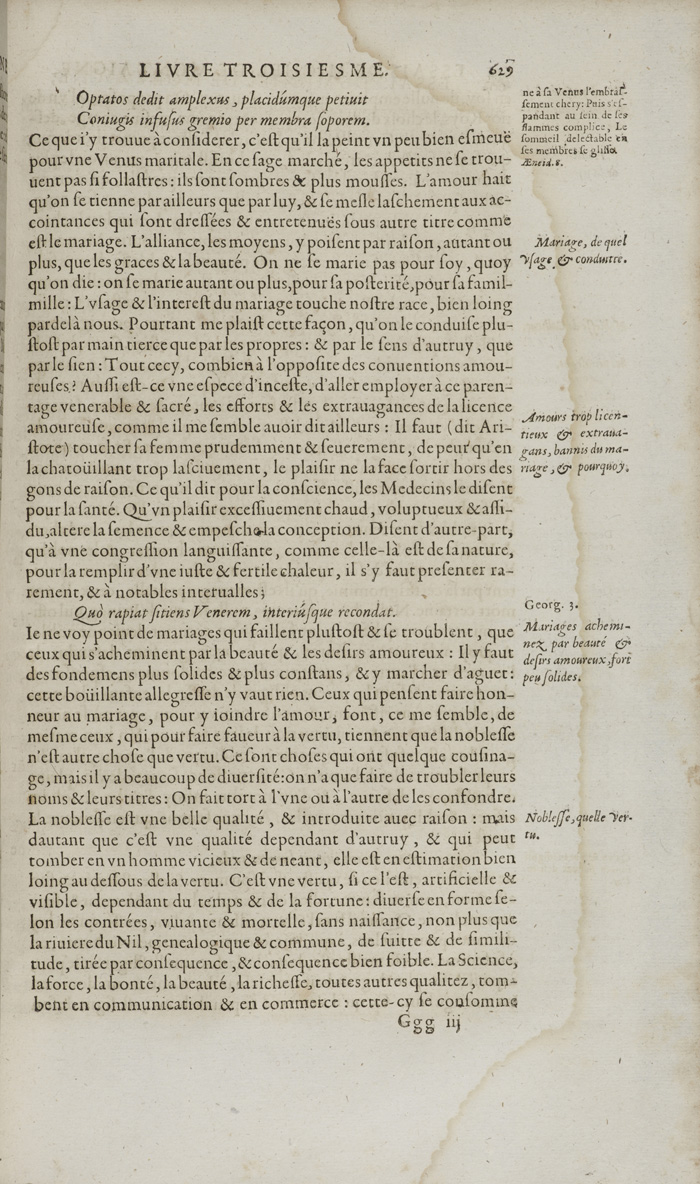 LIVRE TROISIESME. 629
Optatos dedit amplexus, placidúmque petiuit
Coniugis infusus gremio per membra soporem.
Ce que i'y trouue à considerer, c'est qu'il la peint vn peu bien esmeuë
pour vne Venus maritale. En ce sage marché, les appetits ne se trou-
uent pas si follastres : ils sont sombres & plus mousses. L'amour hait
qu'on se tienne par ailleurs que par luy, & se mesle laschement aux ac-
cointances qui sont dressées & entretenuës sous autre titre comme
est le mariage. L'alliance, les moyens, y poisent par raison, autant ou
plus, que les graces & la beauté. On ne se marie pas pour soy, quoy
qu'on die : on se marie autant ou plus, pour sa posterité, pour sa famil-
mille : L'vsage & l'interest du mariage touche nostre race, bien loing
pardelà nous. Pourtant me plaist cette façon, qu'on le conduise plu-
stost par main tierce que par les propres : & par le sens d'autruy, que
par le sien : Tout cecy, combien à l'opposite des conuentions amou-
reuses ? Aussi est-ce vne espece d'inceste, d'aller employer à ce paren-
tage venerable & sacré, les efforts & les extrauagances de la licence
amoureuse, comme il me semble auoir dit ailleurs : Il faut (dit Ari-
stote) toucher sa femme prudemment & seuerement, de peur qu'en
la chatoüillant trop lasciuement, le plaisir ne la face sortir hors des
gons de raison. Ce qu'il dit pour la conscience, les Medecins le disent
pour la santé. Qu'vn plaisir excessiuement chaud, voluptueux & assi-
du, altere la semence & empesche la conception. Disent d'autre-part,
qu'à vne congression languissante, comme celle-là est de sa nature,
pour la remplir d'vne iuste & fertile chaleur, il s'y faut presenter ra-
rement, & à notables interualles ;
Quò rapiat sitiens Venerem, interiúsque recondat.
Ie ne voy point de mariages qui faillent plustost & se troublent, que
ceux qui s'acheminent par la beauté & les desirs amoureux : Il y faut
des fondemens plus solides & plus constans, & y marcher d'aguet :
cette boüillante allegresse n'y vaut rien. Ceux qui pensent faire hon-
neur au mariage, pour y ioindre l'amour, font, ce me semble, de
mesme ceux, qui pour faire faueur à la vertu, tiennent que la noblesse
n'est autre chose que vertu. Ce sont choses qui ont quelque cousina-
ge, mais il y a beaucoup de diuersité : on n'a que faire de troubler leurs
noms & leurs titres : On fait tort à l'vne ou à l'autre de les confondre.
La noblesse est vne belle qualité, & introduite auec raison : mais
dautant que c'est vne qualité dependant d'autruy, & qui peut
tomber en vn homme vicieux & de neant, elle est en estimation bien
loing au dessous de la vertu. C'est vne vertu, si ce l'est, artificielle &
visible, dependant du temps & de la fortune : diuerse en forme se-
lon les contrées, viuante & mortelle, sans naissance, non plus que
la riuiere du Nil, genealogique & commune, de suitte & de simili-
tude, tirée par consequence, & consequence bien foible. La Science,
la force, la bonté, la beauté, la richesse, toutes autres qualitez, tom-
bent en communication & en commerce : cette-cy se consomme
Ggg iij
ne à sa Venus l'embras-
sement chery : Puis s'es-
pandant au sein de ses
flammes complice, Le
sommeil delectable en
ses membres se glisse.
Æneid. 8.
Mariage, de quel
vsage, & conduitte.
Amours trop licen-
tieux & extraua-
gans, bannis du ma-
riage, & pourquoy.
Georg. 3.
Mariages achemi-
nez par beauté &
desirs amoureux, fort
peu solides.
Noblesse, quelle ver-
tu.